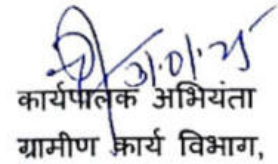 31.01.25
कार्यपालक अभियंता
ग्रामीण कार्य विभाग,